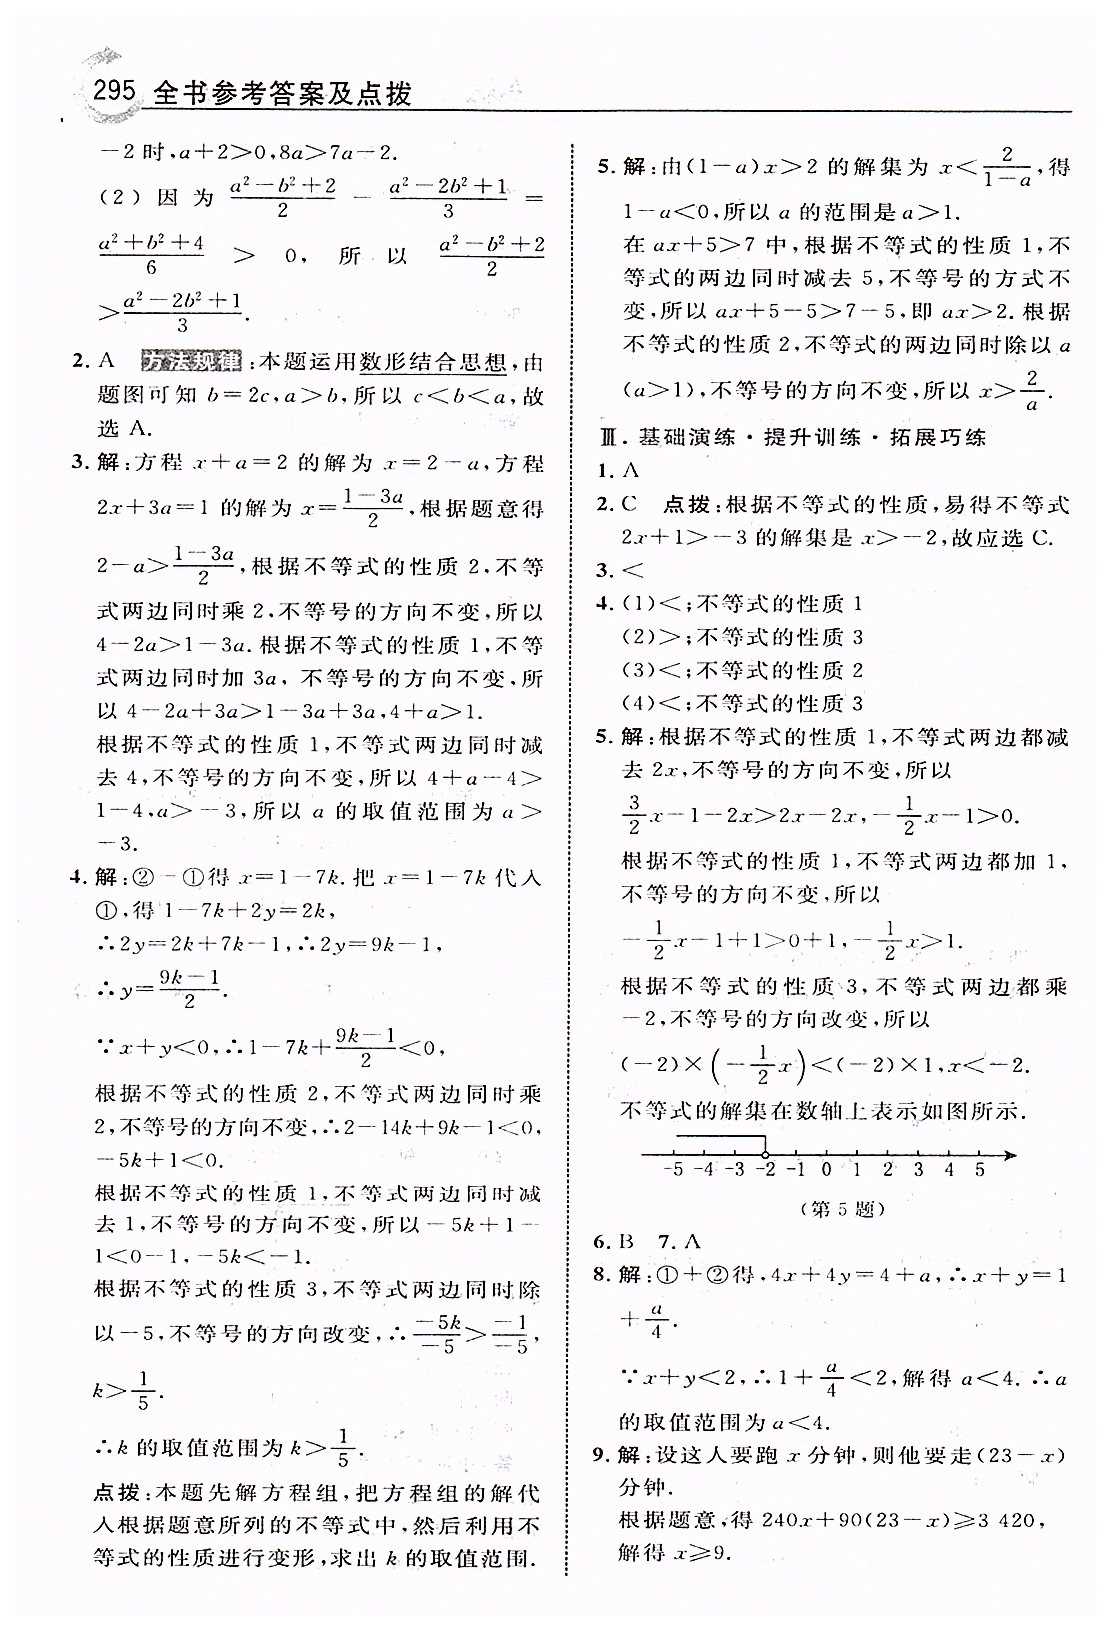 295 全书参考答案及点拨
－2时,a＋2＞0,8a＞7a－2.
(2) 因为 \frac{a²－b²＋2}{2} － \frac{a²－2b²＋1}{3} ＝
\frac{a²＋b²＋4}{6} ＞ 0, 所以 \frac{a²－b²＋2}{2}
＞\frac{a²－2b²＋1}{3}.
2. A 方法规律:本题运用数形结合思想,由
题图可知 b＝2c,a＞b,所以 c＜b＜a,故
选 A.
3. 解:方程 x＋a＝2 的解为 x＝2－a,方程
2x＋3a＝1 的解为 x＝\frac{1－3a}{2},根据题意得
2－a＞\frac{1－3a}{2},根据不等式的性质 2,不等
式两边同时乘 2,不等号的方向不变,所以
4－2a＞1－3a.根据不等式的性质 1,不等
式两边同时加 3a, 不等号的方向不变,所
以 4－2a＋3a＞1－3a＋3a,4＋a＞1.
根据不等式的性质 1,不等式两边同时减
去 4,不等号的方向不变,所以 4＋a－4＞
1－4,a＞－3,所以 a 的取值范围为 a＞
－3.
4. 解:②－①得 x＝1－7k.把 x＝1－7k 代入
①,得 1－7k＋2y＝2k,
∴2y＝2k＋7k－1,∴2y＝9k－1,
∴y＝\frac{9k－1}{2}.
∵x＋y＜0,∴1－7k＋\frac{9k－1}{2}＜0,
根据不等式的性质 2,不等式两边同时乘
2,不等号的方向不变,∴2－14k＋9k－1＜0,
－5k＋1＜0.
根据不等式的性质 1,不等式两边同时减
去 1,不等号的方向不变,所以－5k＋1－
1＜0－1,－5k＜－1.
根据不等式的性质 3,不等式两边同时除
以－5,不等号的方向改变,∴\frac{－5k}{－5}＞\frac{－1}{－5},
k＞\frac{1}{5}.
∴k 的取值范围为 k＞\frac{1}{5}.
点拨:本题先解方程组,把方程组的解代
人根据题意所列的不等式中,然后利用不
等式的性质进行变形,求出 k 的取值范围.
5. 解:由(1－a)x＞2 的解集为 x＜\frac{2}{1－a},得
1－a＜0,所以 a 的范围是 a＞1.
在 ax＋5＞7 中,根据不等式的性质 1,不
等式的两边同时减去 5,不等号的方式不
变,所以 ax＋5－5＞7－5,即 ax＞2.根据
不等式的性质 2,不等式的两边同时除以 a
(a＞1),不等号的方向不变,所以 x＞\frac{2}{a}.
Ⅲ. 基础演练·提升训练·拓展巧练
1. A
2. C 点拨:根据不等式的性质,易得不等式
2x＋1＞－3 的解集是 x＞－2,故应选 C.
3. ＜
4. (1)＜;不等式的性质 1
(2)＞;不等式的性质 3
(3)＜;不等式的性质 2
(4)＜;不等式的性质 3
5. 解:根据不等式的性质 1,不等式两边都减
去 2x,不等号的方向不变,所以
\frac{3}{2}x－1－2x＞2x－2x,－\frac{1}{2}x－1＞0.
根据不等式的性质 1,不等式两边都加 1,
不等号的方向不变,所以
－\frac{1}{2}x－1＋1＞0＋1,－\frac{1}{2}x＞1.
根据不等式的性质 3,不等式两边都乘
－2,不等号的方向改变,所以
(－2)×(－\frac{1}{2}x)＜(－2)×1,x＜－2.
不等式的解集在数轴上表示如图所示.
-5 -4 -3 -2 -1 0 1 2 3 4 5
(第 5 题)
6. B 7. A
8. 解:①＋②得,4x＋4y＝4＋a,∴x＋y＝1
＋\frac{a}{4}.
∵x＋y＜2,∴1＋\frac{a}{4}＜2,解得 a＜4. ∴a
的取值范围为 a＜4.
9. 解:设这人要跑 x 分钟,则他要走(23－x)
分钟.
根据题意,得 240x＋90(23－x)≥3 420,
解得 x≥9.